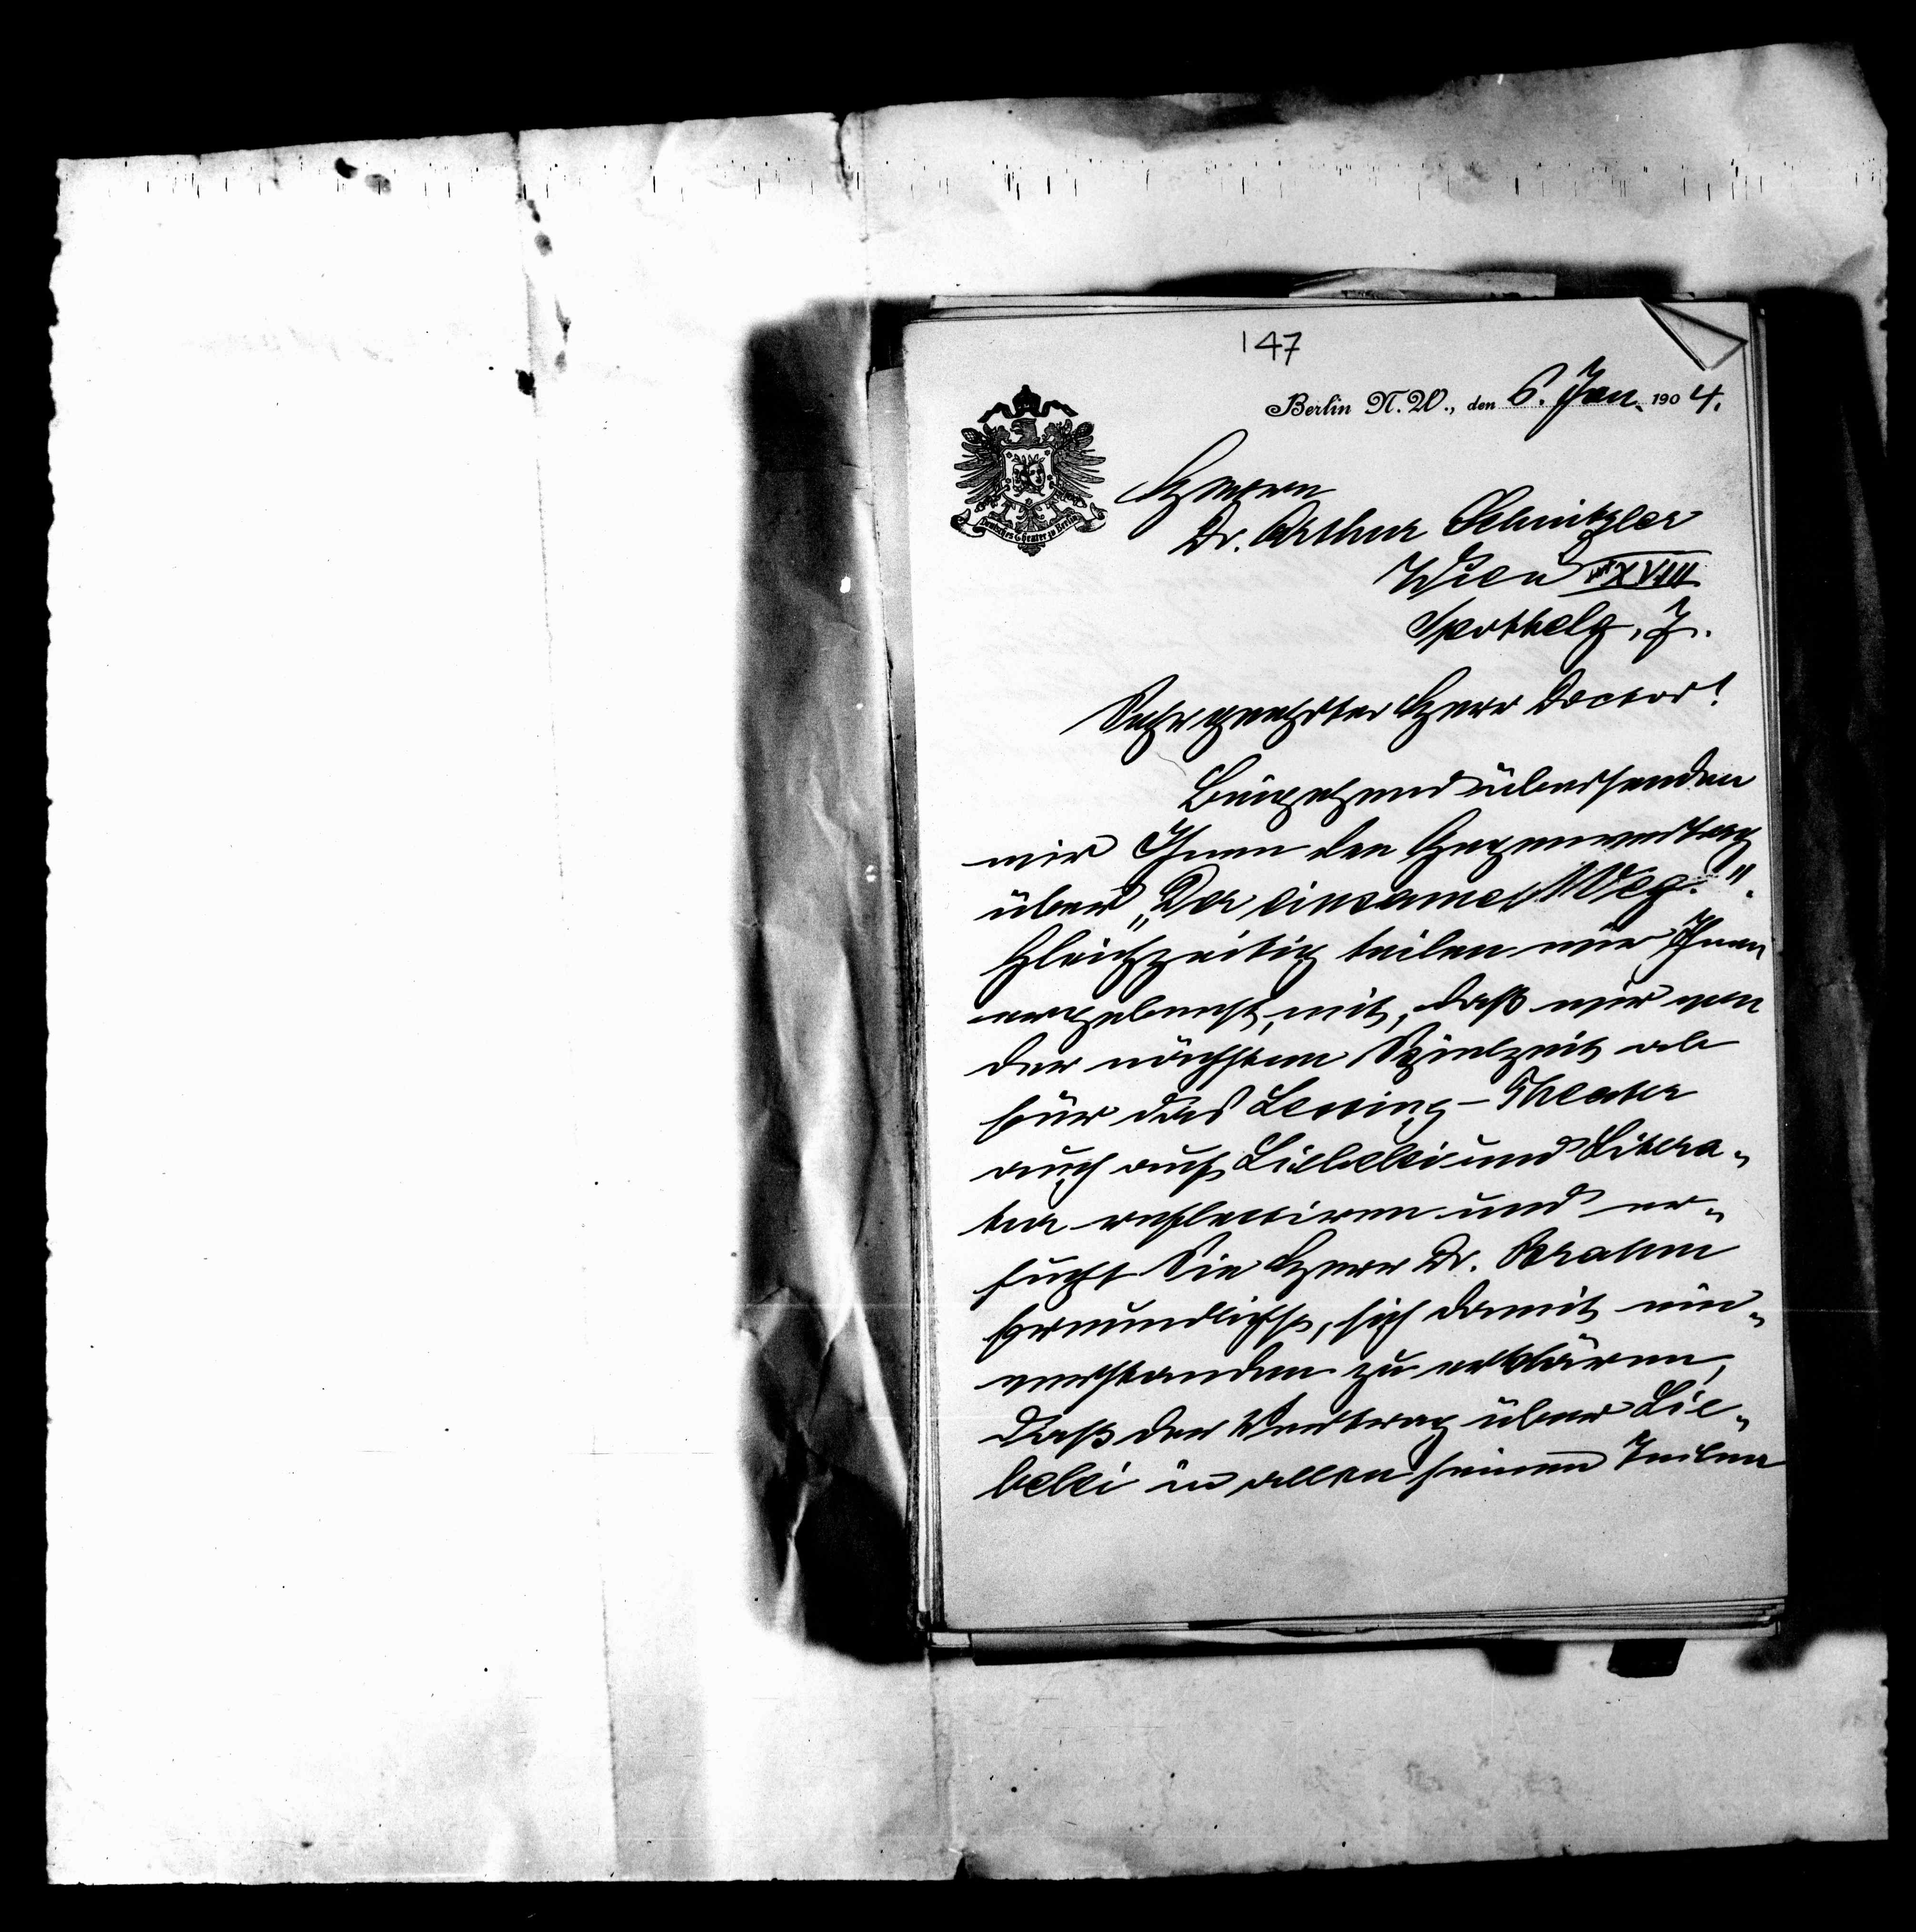 147
Berlin N.W., den 6. Jan. 1904.
Deutsches Theater zu Berlin
Herrn
Dr. Arthur Schnitzler
Wien XVIII
Spöttelg. 7.
Sehr geehrter Herr Doctor!
Beigehend übersenden
wir Ihnen den Gegenvertrag
über „Der einsame Weg.“.
Gleichzeitig teilen wir Ihnen
ergebenst mit, daß wir von
der nächsten Spielzeit ab
für das Lessing-Theater
auch auf Liebelei und Litera-
tur reflectiren und er-
sucht Sie Herr Dr. Brahm
freundlichst, sich damit ein-
verstanden zu erklären,
daß der Vertrag über Lie-
belei in allen seinen Teilen